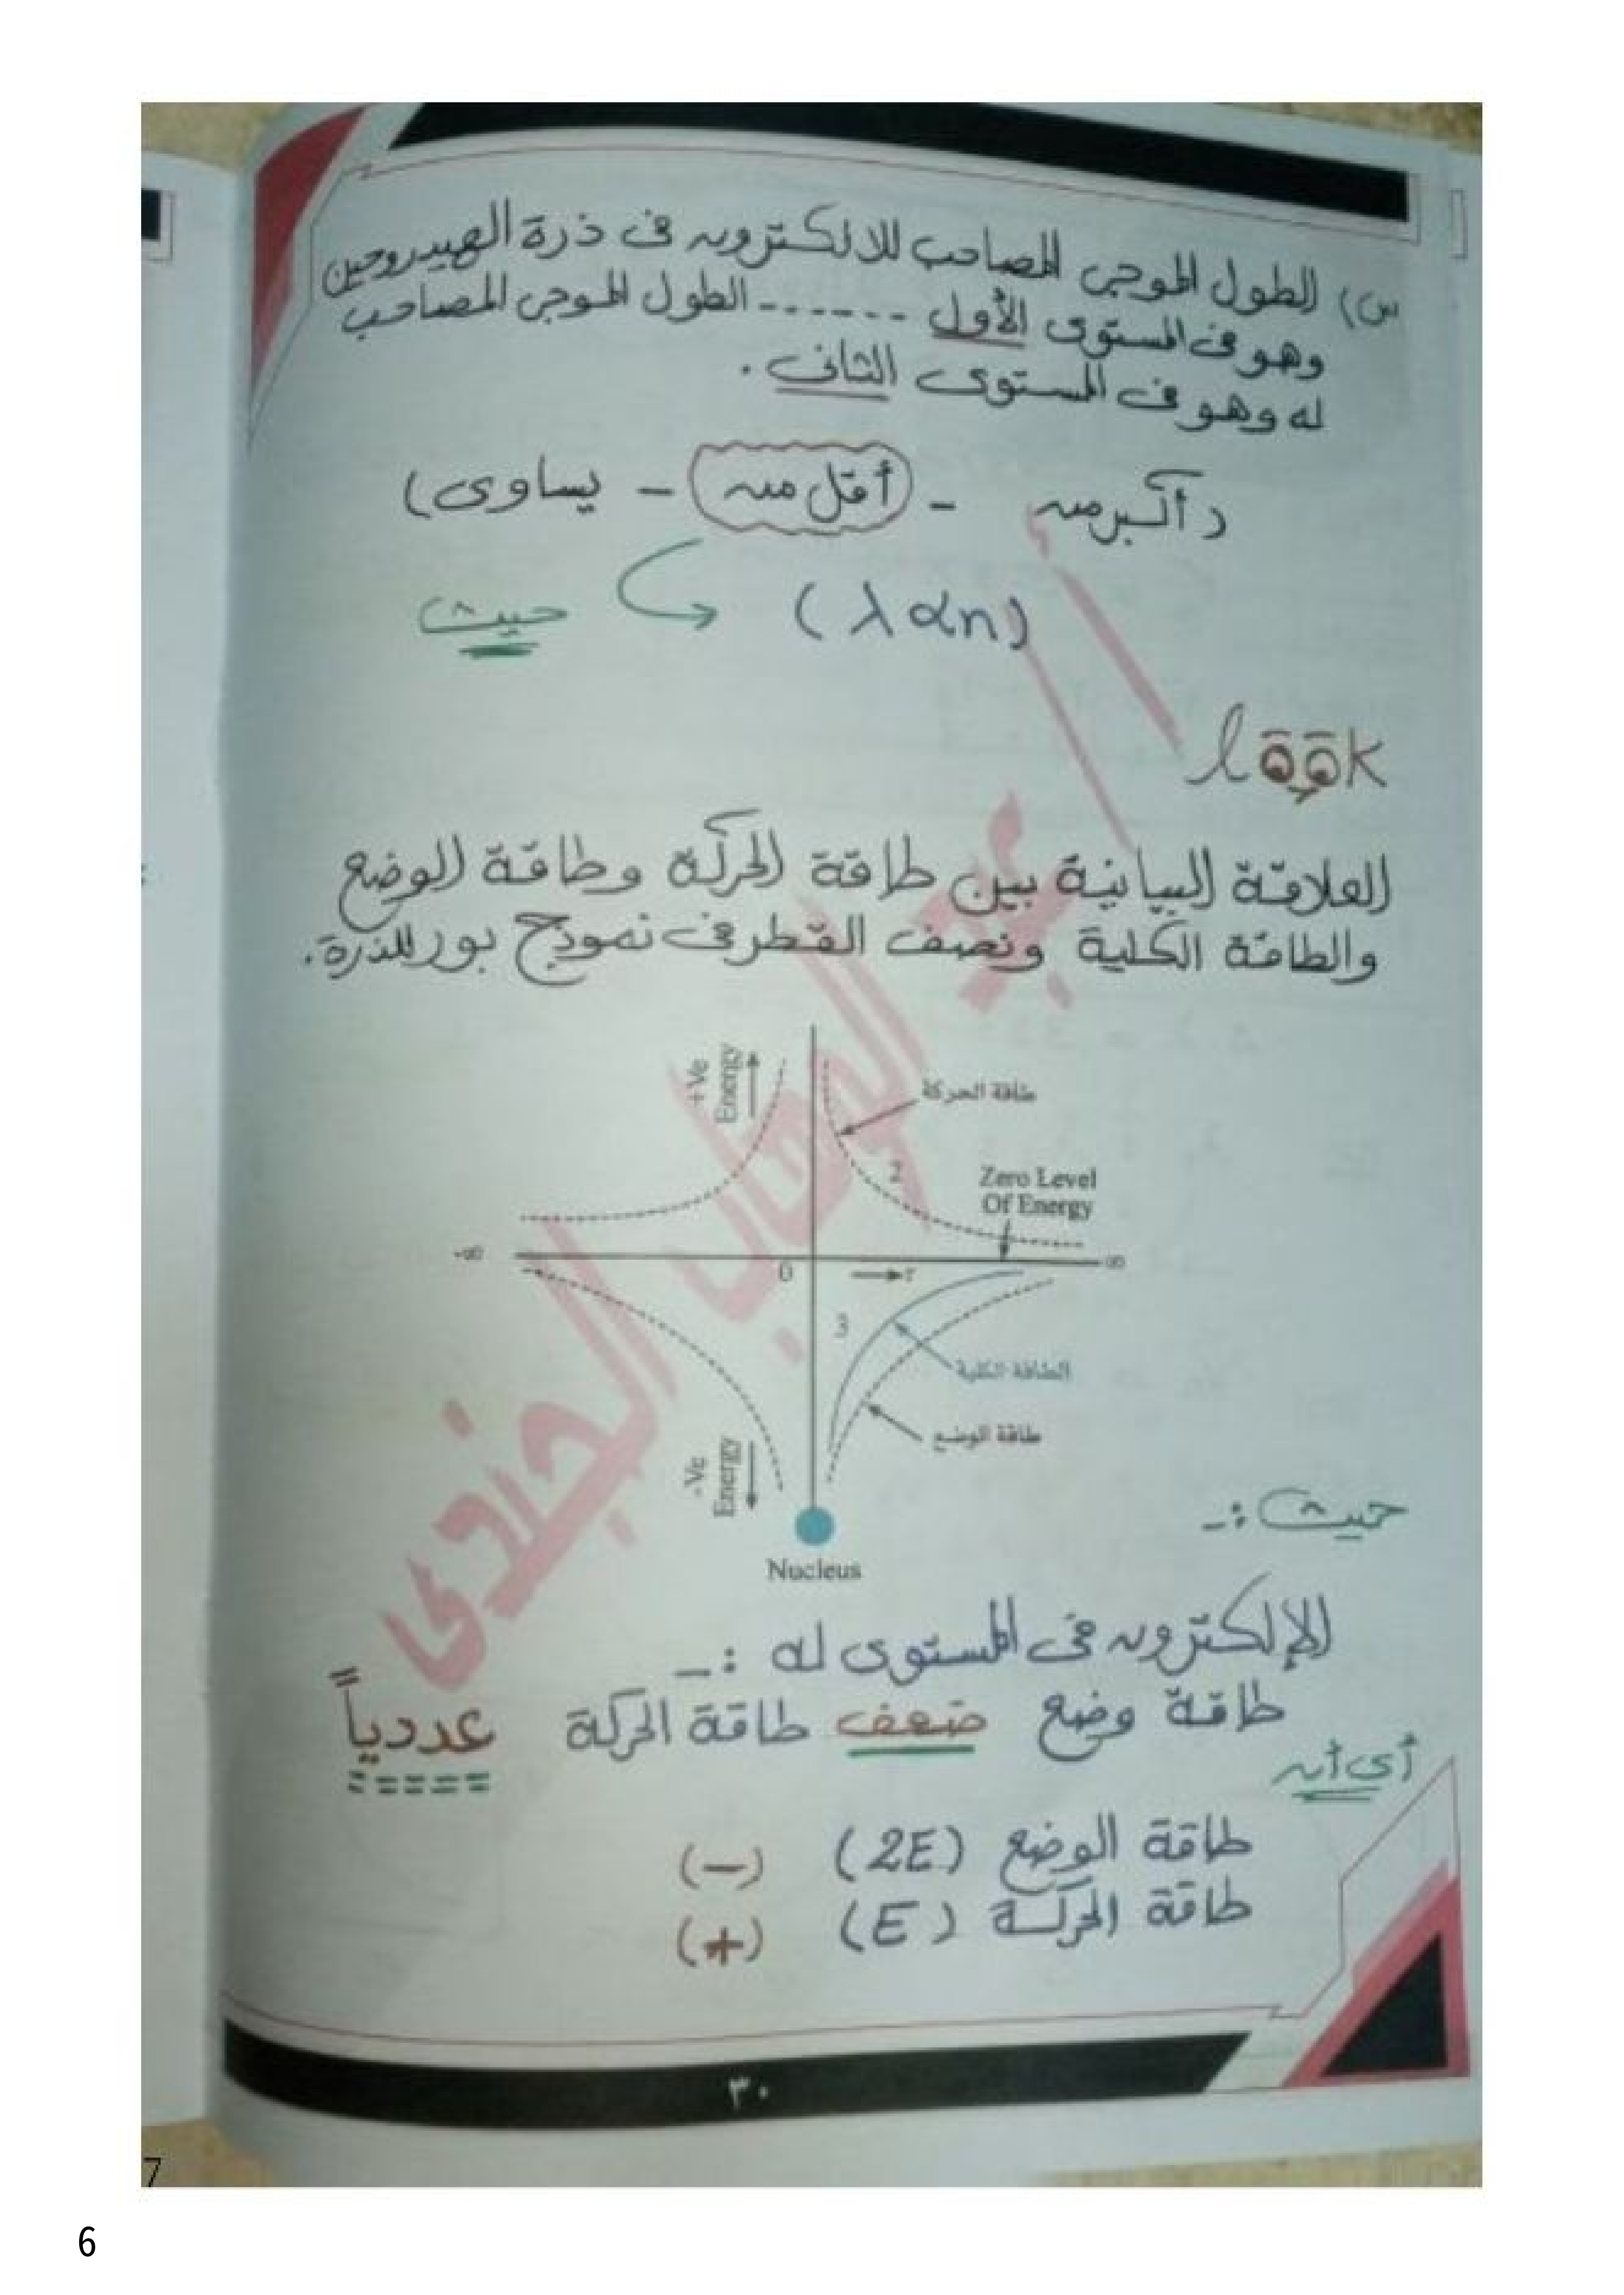 س) الطول الموجى المصاحب للالكترون فى ذرة الهيدروجين
وهو فى المستوى الأول ------- الطول الموجى المصاحب
له وهو فى المستوى الثانى .
(أكبر من - أقل من - يساوى)
حيث (λ α n)
look
العلاقة البيانية بين طاقة الحركة وطاقة الوضع
والطاقة الكلية ونصف القطر فى نموذج بور للذرة.
+Ve
Energy
طاقة الحركة
2
Zero Level
Of Energy
-∞
∞
0
r
3
الطاقة الكلية
طاقة الوضع
-Ve
Energy
Nucleus
حيث :-
الإلكترون فى المستوى له :-
طاقة وضع ضعف طاقة الحركة عددياً
أى أن
طاقة الوضع (2E) (-)
طاقة الحركة (E) (+)
أ/ عبد الوهاب الجندى
٣٠
7
6